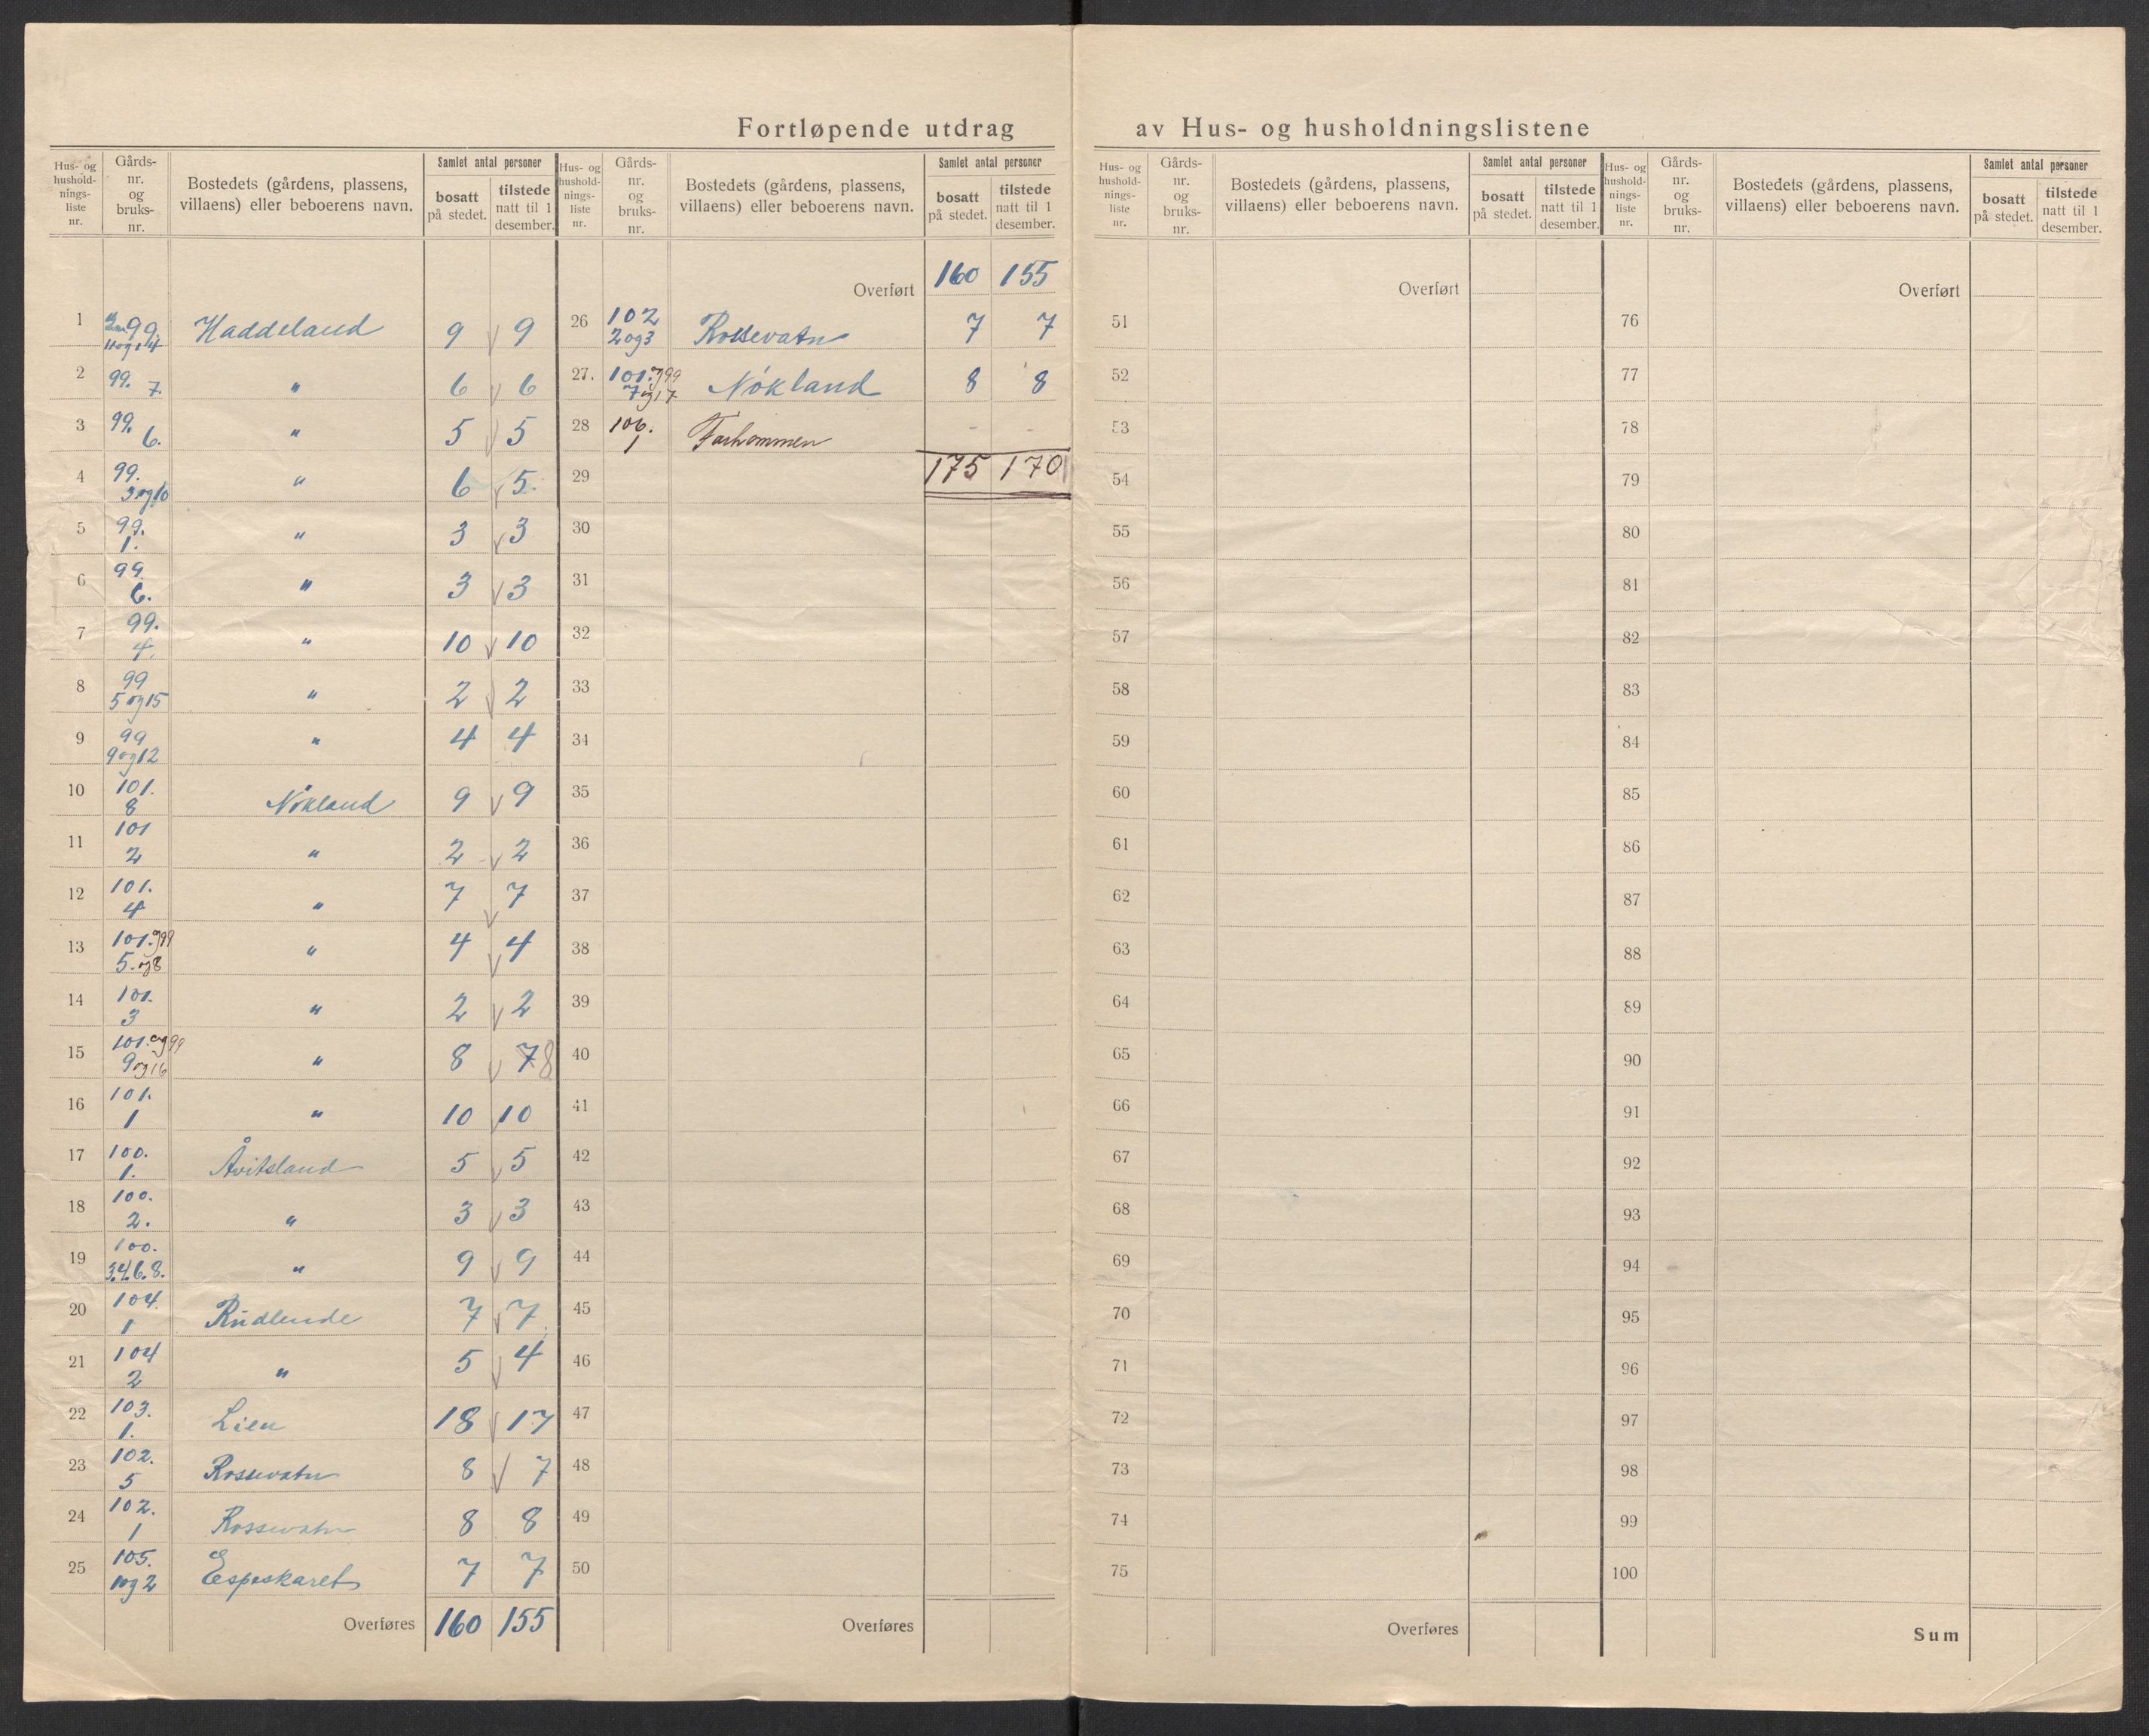 Fortløpende utdrag av Hus- og husholdningslistene
Hus- og hushold- nings- liste nr.
Gårds- nr. og bruks- nr.
Bostedets (gårdens, plassens, villaens) eller beboerens navn.
Samlet antal personer
bosatt på stedet.
tilstede natt til 1 desember.
1 99. 11 og 14 Haddeland 9 9
2 99. 7. " 6 6
3 99. 6. " 5 5
4 99. 3 og 10 " 6 5
5 99. 1. " 3 3
6 99. 6. " 3 3
7 99. 4. " 10 10
8 99 5 og 15 " 2 2
9 99 9 og 12 " 4 4
10 101. 8 Nökland 9 9
11 101 2 " 2 2
12 101. 4 " 7 7
13 101. og 99 5. og 8 " 4 4
14 101. 3 " 2 2
15 101. og 99 9 og 16 " 8 7 8
16 101. 1 " 10 10
17 100. 1. Åvitsland 5 5
18 100. 2. " 3 3
19 100. 3.4.6.8. " 9 9
20 104. 1 Rudlende 7 7
21 104 2 " 5 4
22 103. 1. Lien 18 17
23 102. 5 Rossevatn 8 7
24 102. 1 Rossevatn 8 8
25 105. 1 og 2 Espeskaret 7 7
Overføres 160 155
Hus- og hushold- nings- liste nr.
Gårds- nr. og bruks- nr.
Bostedets (gårdens, plassens, villaens) eller beboerens navn.
Samlet antal personer
bosatt på stedet.
tilstede natt til 1 desember.
Overført 160 155
26 102 2 og 3 Rossevatn 7 7
27. 101. og 99 7 og 17 Nökland 8 8
28 106. 1 Farhommen - -
29 175 170
30
31
32
33
34
35
36
37
38
39
40
41
42
43
44
45
46
47
48
49
50
Overføres
Hus- og hushold- nings- liste nr.
Gårds- nr. og bruks- nr.
Bostedets (gårdens, plassens, villaens) eller beboerens navn.
Samlet antal personer
bosatt på stedet.
tilstede natt til 1 desember.
Overført
51
52
53
54
55
56
57
58
59
60
61
62
63
64
65
66
67
68
69
70
71
72
73
74
75
Overføres
Hus- og hushold- nings- liste nr.
Gårds- nr. og bruks- nr.
Bostedets (gårdens, plassens, villaens) eller beboerens navn.
Samlet antal personer
bosatt på stedet.
tilstede natt til 1 desember.
Overført
76
77
78
79
80
81
82
83
84
85
86
87
88
89
90
91
92
93
94
95
96
97
98
99
100
Sum